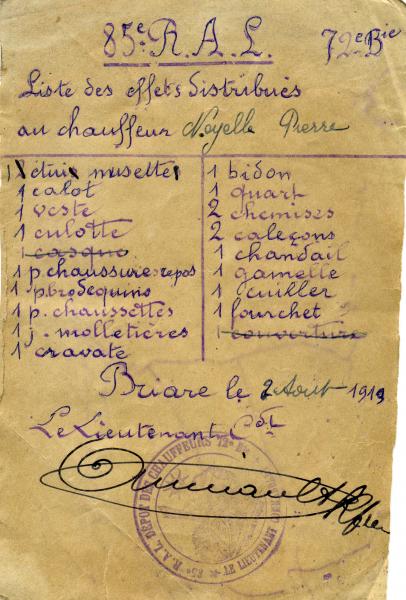 85e R.A.L. 72e Bie
Liste des effets distribués
au chauffeur Noyelle Pierre
1 étui musette
1 calot
1 veste
1 culotte
1 casque
1 p. chaussures repos
1 p. brodequins
1 p. chaussettes
1 j. molletières
1 cravate
1 bidon
1 quart
2 chemises
2 caleçons
1 chandail
1 gamelle
1 cuiller
1 fourchet
1 couverture
Briare le 2 Août 1919
Le Lieutenant Cdt
85e R.A.L. DÉPOT DE CHAUFFEURS